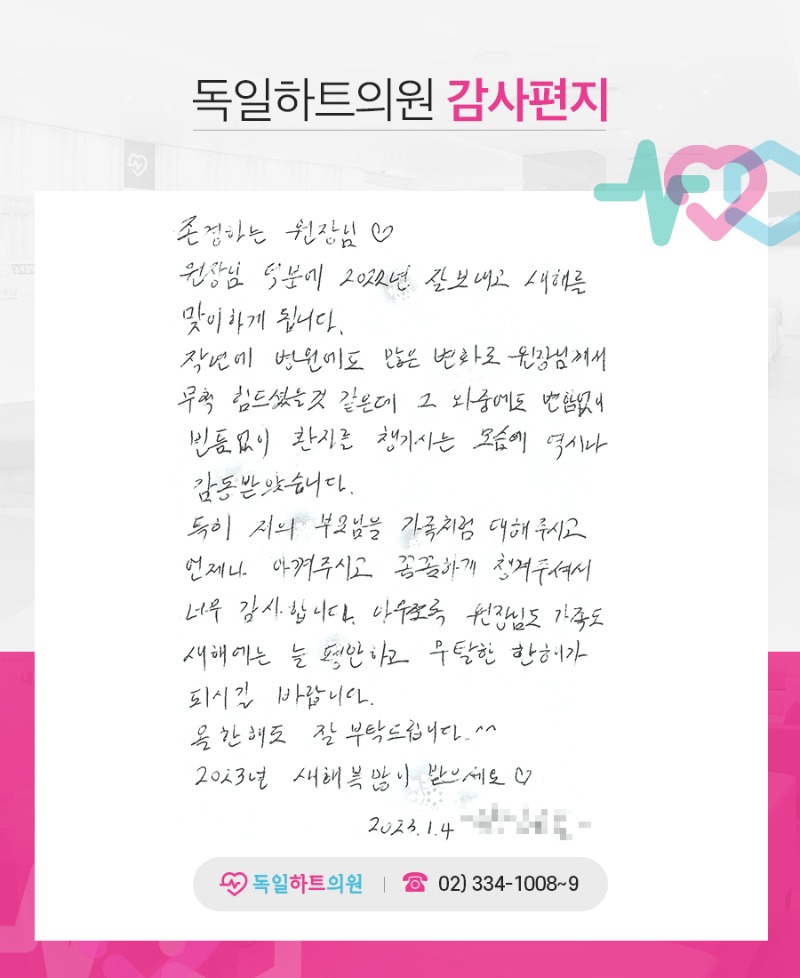 독일하트의원 감사편지
존경하는 원장님 ♡
원장님 덕분에 2022년 잘보내고 새해를
맞이하게 됩니다.
작년에 병원에도 많은 변화로 원장님께서
무척 힘드셨을것 같은데 그 와중에도 변함없이
빈틈없이 환자를 챙기시는 모습에 역시나
감동받았습니다.
특히 저의 부모님을 가족처럼 대해주시고
언제나 아껴주시고 꼼꼼하게 챙겨주셔서
너무 감사합니다. 아무쪼록 원장님도 가족도
새해에는 늘 평안하고 무탈한 한해가
되시길 바랍니다.
올 한해도 잘 부탁드립니다. ^^
2023년 새해복많이 받으세요 ♡
2023.1.4
독일하트의원 | 02) 334-1008~9